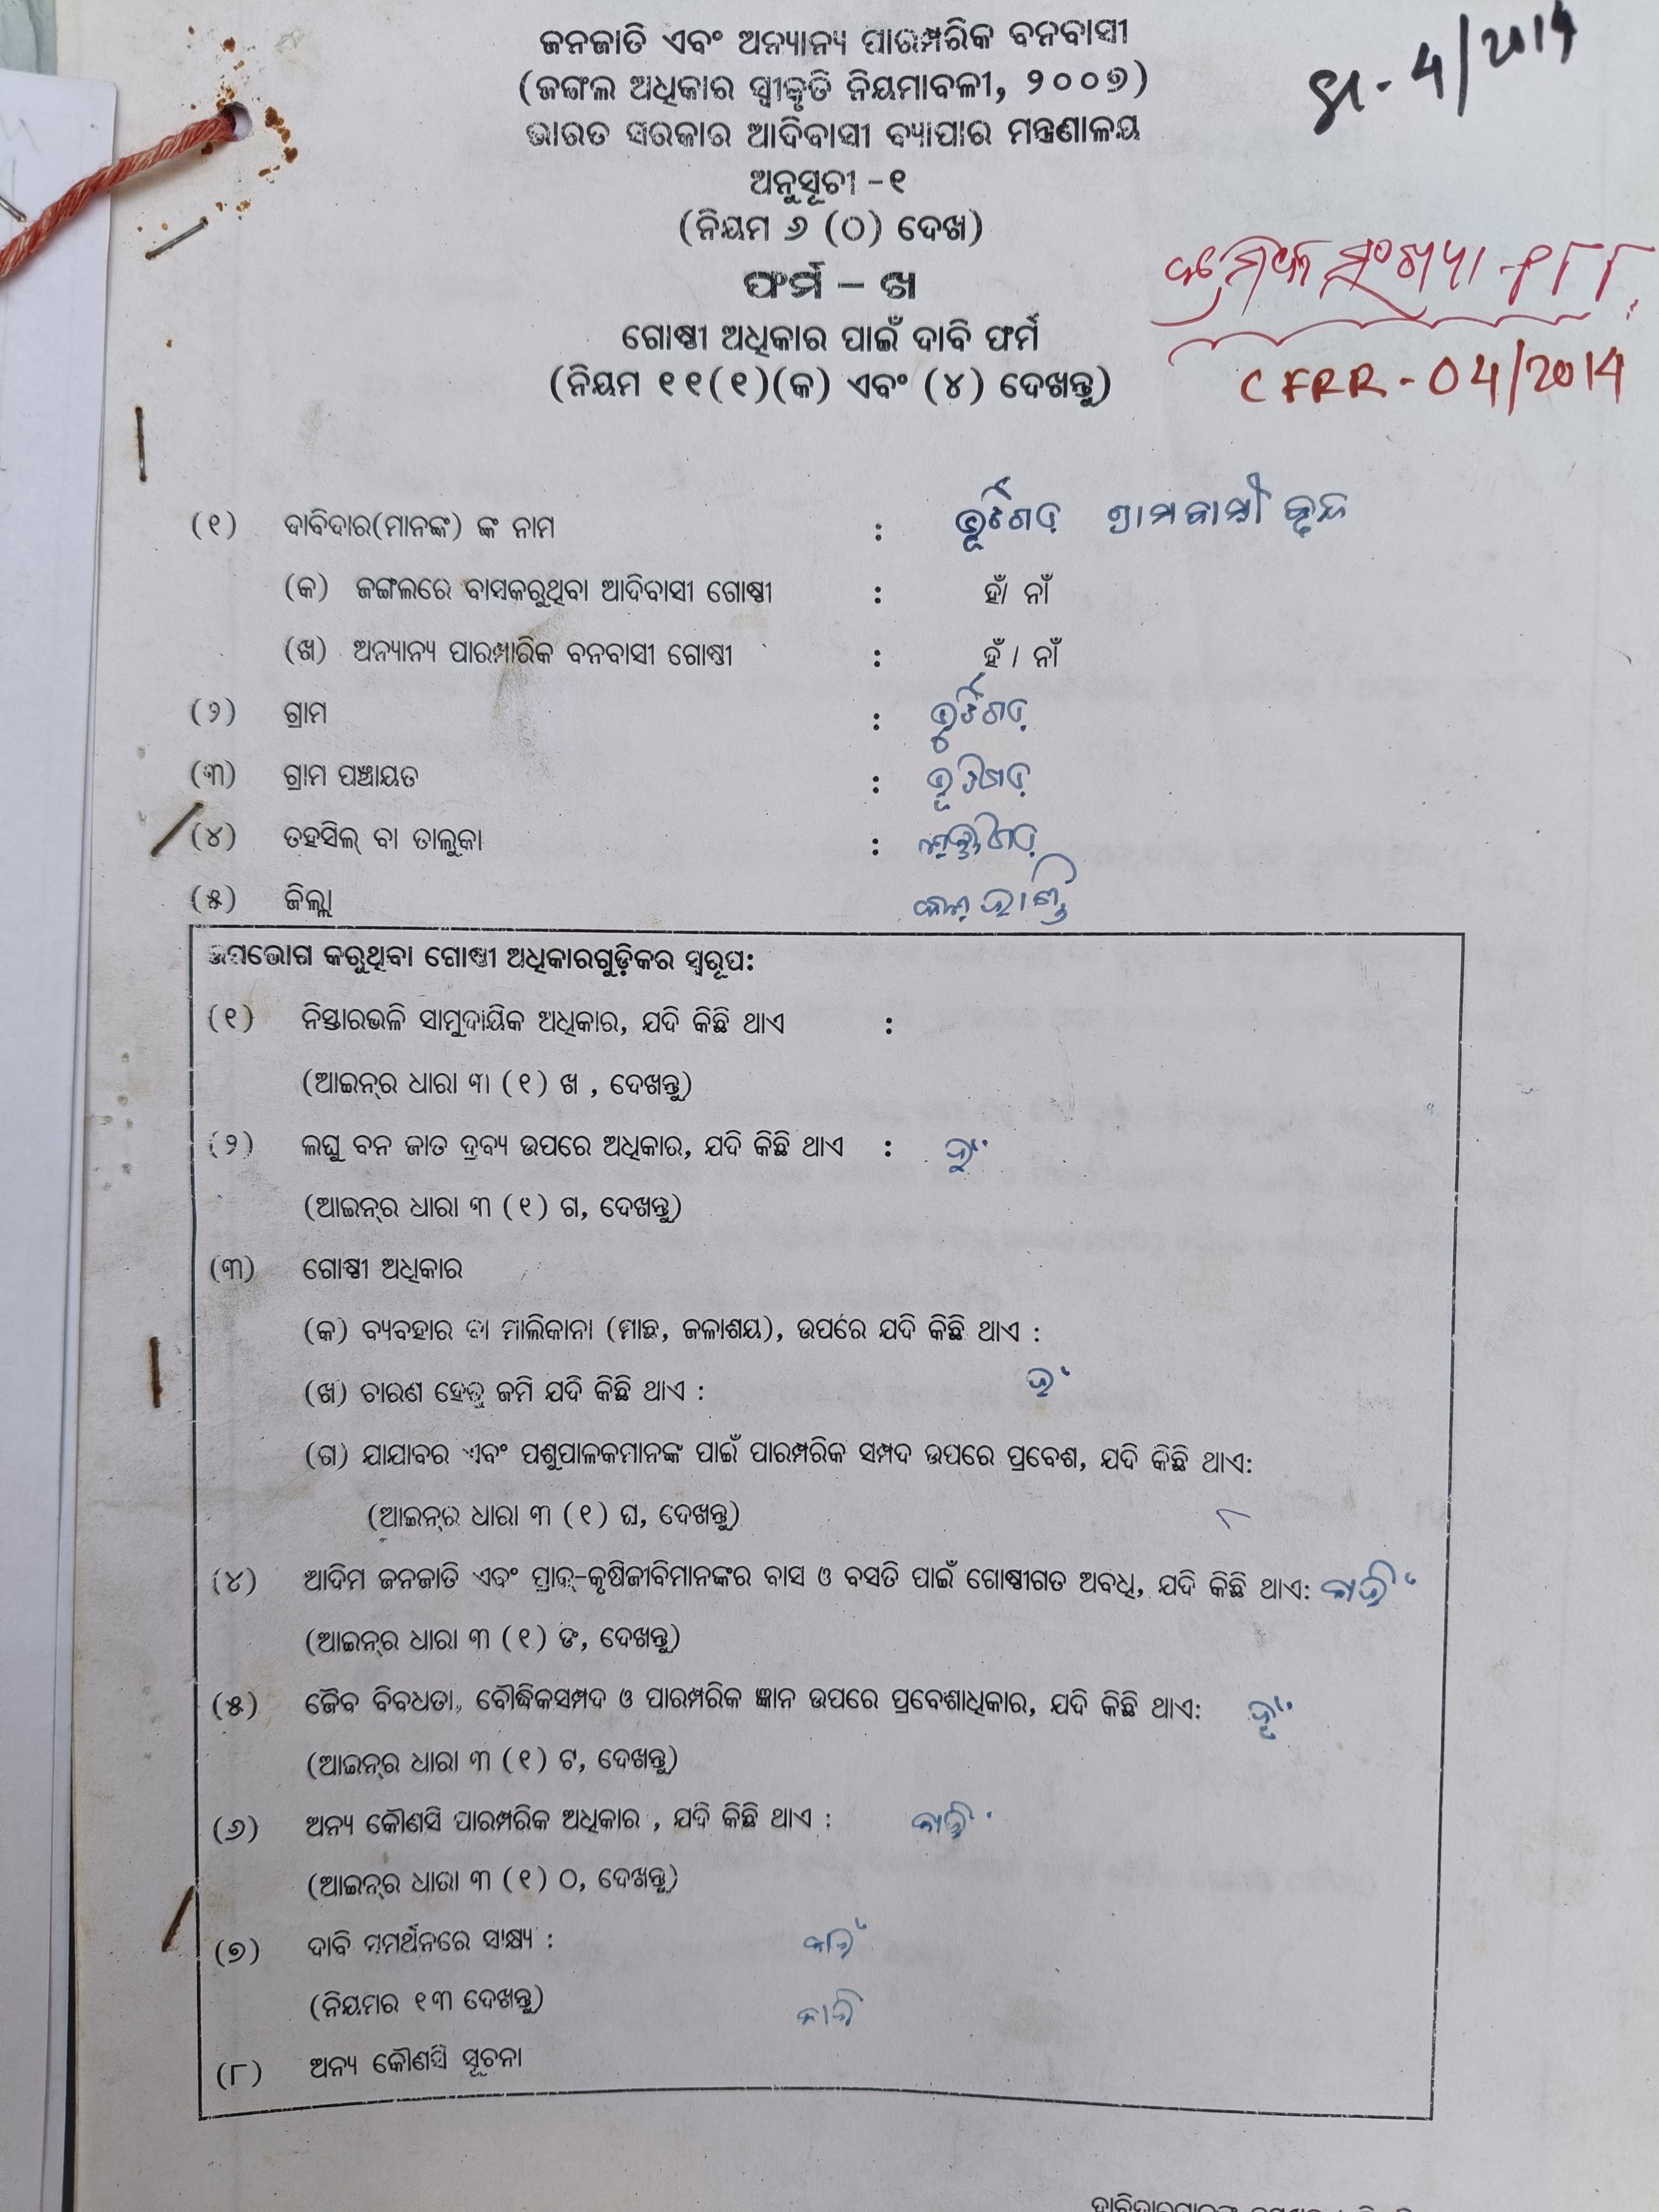 ଜନଜାତି ଏବଂ ଅନ୍ୟାନ୍ୟ ପାରମ୍ପରିକ ବନବାସୀ
(ଜଙ୍ଗଲ ଅଧିକାର ସ୍ୱୀକୃତି ନିୟମାବଳୀ, ୨୦୦୭)
ଭାରତ ସରକାର ଆଦିବାସୀ ବ୍ୟାପାର ମନ୍ତ୍ରଣାଳୟ
4/2014
ଅନୁସୂଚୀ -୧
(ନିୟମ ୬ (ଠ) ଦେଖ)
ଫର୍ମ – ଖ
କ୍ରମିକ ସଂଖ୍ୟା
ଗୋଷ୍ଠୀ ଅଧିକାର ପାଇଁ ଦାବି ଫର୍ମ
(ନିୟମ ୧୧(୧)(କ) ଏବଂ (୪) ଦେଖନ୍ତୁ)
CFRR - 04/2014
(୧) ଦାବିଦାର(ମାନଙ୍କ) ଙ୍କ ନାମ : ଗ୍ରାମବାସୀ ବୃନ୍ଦ
(କ) ଜଙ୍ଗଲରେ ବାସକରୁଥିବା ଆଦିବାସୀ ଗୋଷ୍ଠୀ : ହାଁ ନାଁ
(ଖ) ଅନ୍ୟାନ୍ୟ ପାରମ୍ପାରିକ ବନବାସୀ ଗୋଷ୍ଠୀ : ହଁ । ନାଁ
(୨) ଗ୍ରାମ :
(୩) ଗ୍ରାମ ପଞ୍ଚାୟତ :
(୪) ତହସିଲ୍ ବା ତାଲୁକା :
(୫) ଜିଲ୍ଲା କଳାହାଣ୍ଡି
ଉପଭୋଗ କରୁଥିବା ଗୋଷ୍ଠୀ ଅଧିକାରଗୁଡ଼ିକର ସ୍ୱରୂପ:
(୧) ନିସ୍ତାରଭଳି ସାମୁଦାୟିକ ଅଧିକାର, ଯଦି କିଛି ଥାଏ :
(ଆଇନ୍‌ର ଧାରା ୩ (୧) ଖ , ଦେଖନ୍ତୁ)
(୨) ଲଘୁ ବନ ଜାତ ଦ୍ରବ୍ୟ ଉପରେ ଅଧିକାର, ଯଦି କିଛି ଥାଏ : ହଁ
(ଆଇନ୍‌ର ଧାରା ୩ (୧) ଗ, ଦେଖନ୍ତୁ)
(୩) ଗୋଷ୍ଠୀ ଅଧିକାର
(କ) ବ୍ୟବହାର ବା ମାଲିକାନା (ମାଛ, ଜଳାଶୟ), ଉପରେ ଯଦି କିଛି ଥାଏ :
(ଖ) ଚାରଣ ହେତୁ ଜମି ଯଦି କିଛି ଥାଏ : ହଁ
(ଗ) ଯାଯାବର ଏବଂ ପଶୁପାଳକମାନଙ୍କ ପାଇଁ ପାରମ୍ପରିକ ସମ୍ପଦ ଉପରେ ପ୍ରବେଶ, ଯଦି କିଛି ଥାଏ:
(ଆଇନ୍‌ର ଧାରା ୩ (୧) ଘ, ଦେଖନ୍ତୁ)
(୪) ଆଦିମ ଜନଜାତି ଏବଂ ପ୍ରାକ୍-କୃଷିଜୀବିମାନଙ୍କର ବାସ ଓ ବସତି ପାଇଁ ଗୋଷ୍ଠୀଗତ ଅବଧି, ଯଦି କିଛି ଥାଏ: ନାହିଁ
(ଆଇନ୍‌ର ଧାରା ୩ (୧) ଙ, ଦେଖନ୍ତୁ)
(୫) ଜୈବ ବିବଧତା, ବୌଦ୍ଧିକସମ୍ପଦ ଓ ପାରମ୍ପରିକ ଜ୍ଞାନ ଉପରେ ପ୍ରବେଶାଧିକାର, ଯଦି କିଛି ଥାଏ: ହଁ
(ଆଇନ୍‌ର ଧାରା ୩ (୧) ଟ, ଦେଖନ୍ତୁ)
(୬) ଅନ୍ୟ କୌଣସି ପାରମ୍ପରିକ ଅଧିକାର , ଯଦି କିଛି ଥାଏ : ନାହିଁ
(ଆଇନ୍‌ର ଧାରା ୩ (୧) ଠ, ଦେଖନ୍ତୁ)
(୭) ଦାବି ସମର୍ଥନରେ ସାକ୍ଷ୍ୟ : ନାହିଁ
(ନିୟମର ୧୩ ଦେଖନ୍ତୁ) ନାହିଁ
(୮) ଅନ୍ୟ କୌଣସି ସୂଚନା